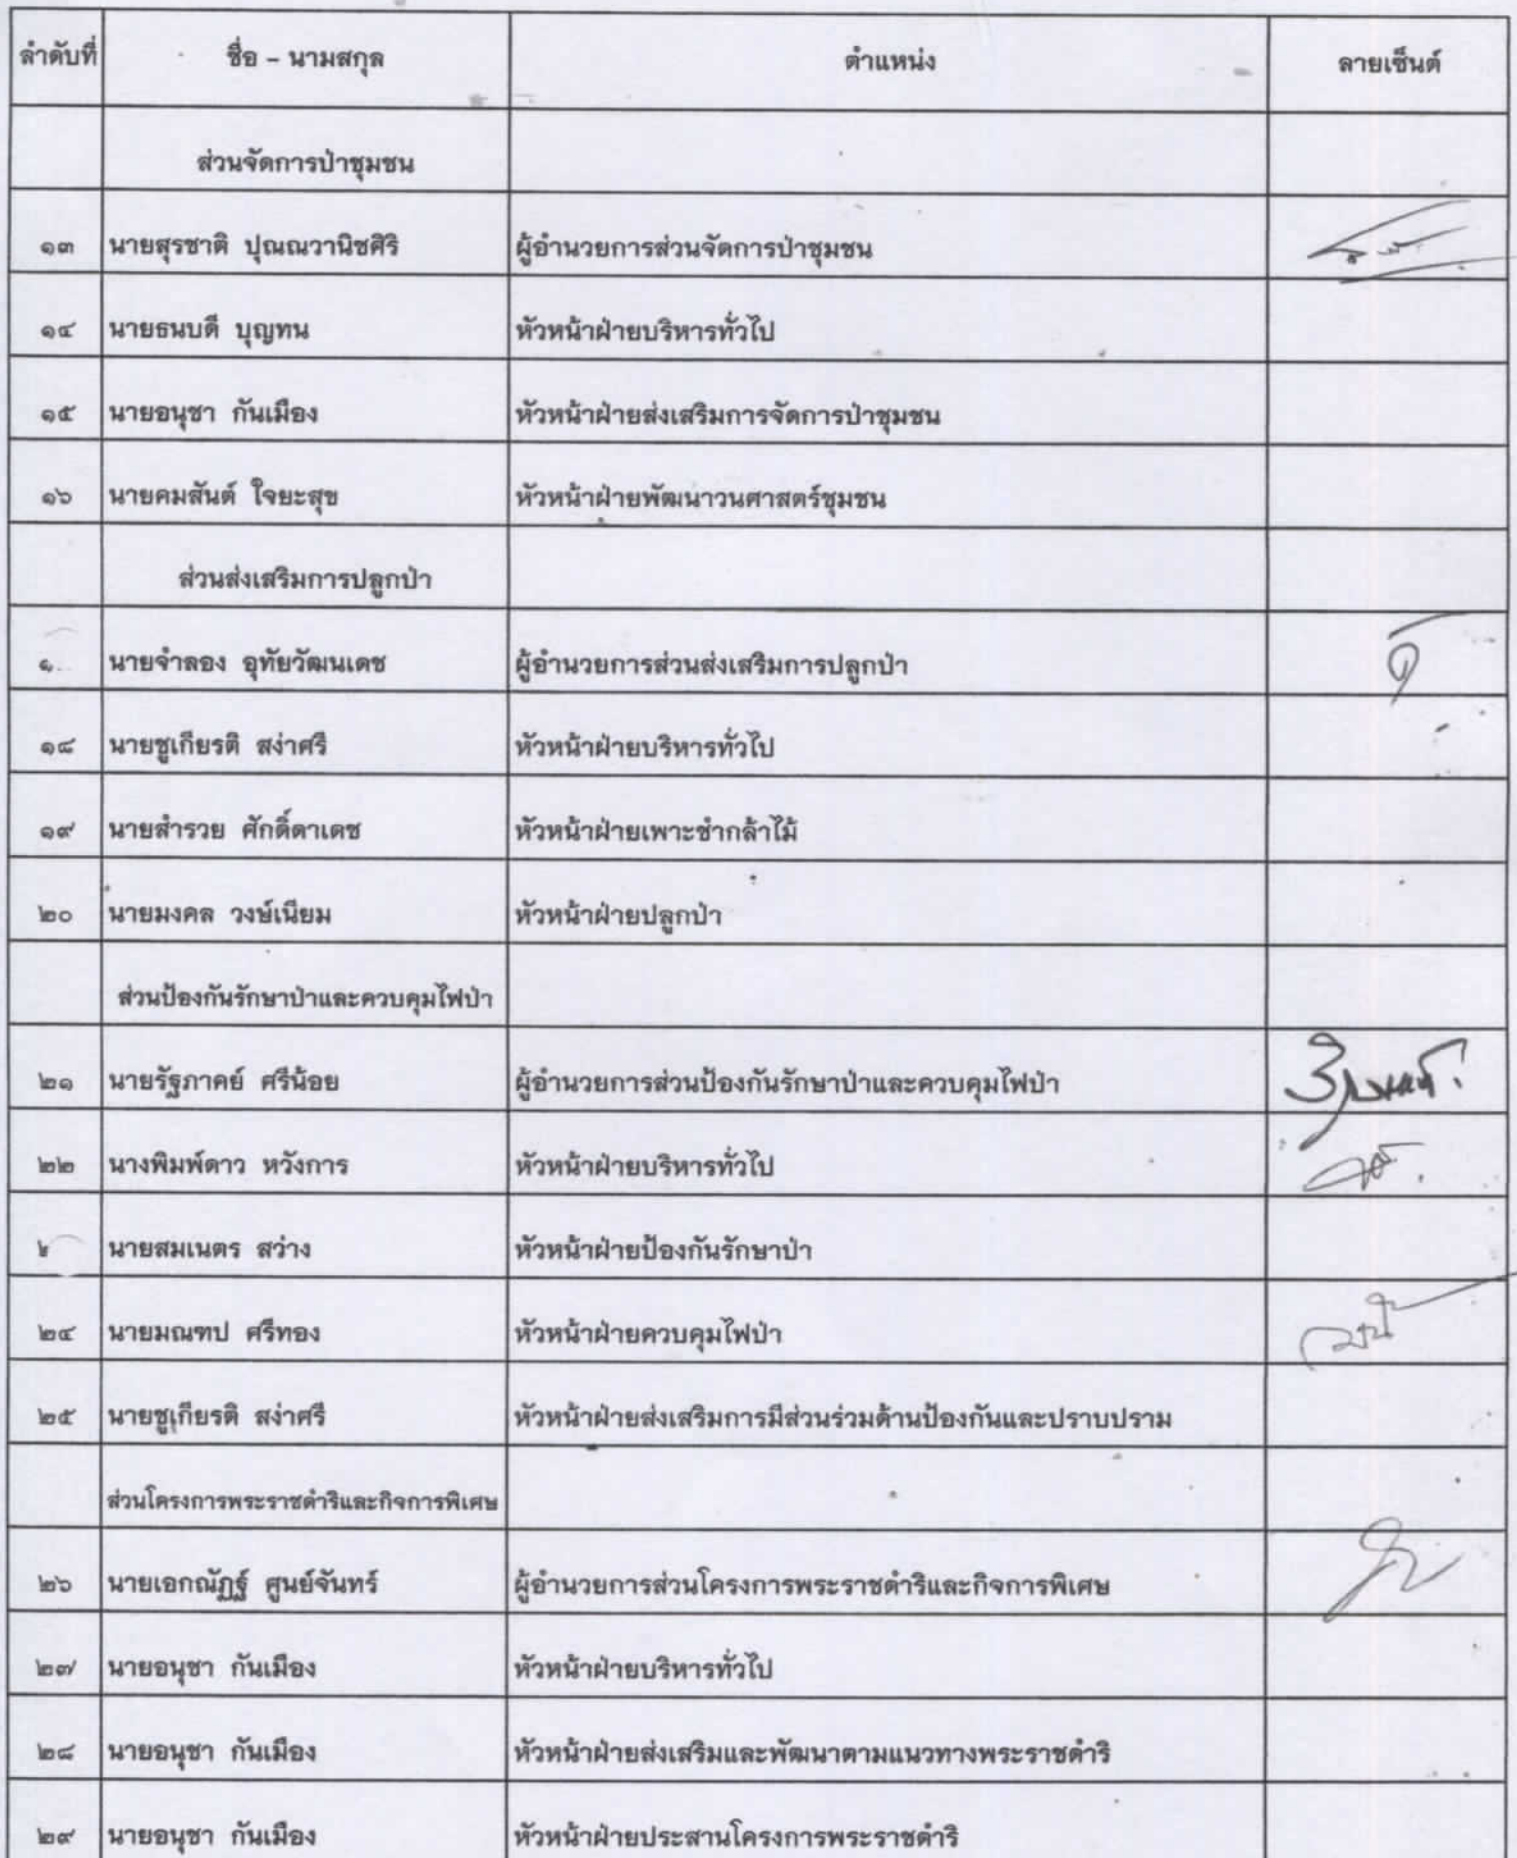 ลำดับที่ ชื่อ - นามสกุล ตำแหน่ง ลายเซ็นต์
ส่วนจัดการป่าชุมชน
๑๓ นายสุรชาติ ปุณณวานิชศิริ ผู้อำนวยการส่วนจัดการป่าชุมชน
๑๔ นายธนบดี บุญทน หัวหน้าฝ่ายบริหารทั่วไป
๑๕ นายอนุชา กันเมือง หัวหน้าฝ่ายส่งเสริมการจัดการป่าชุมชน
๑๖ นายคมสันต์ ใจยะสุข หัวหน้าฝ่ายพัฒนาวนศาสตร์ชุมชน
ส่วนส่งเสริมการปลูกป่า
๑ นายจำลอง อุทัยวัฒนเดช ผู้อำนวยการส่วนส่งเสริมการปลูกป่า
๑๘ นายชูเกียรติ สง่าศรี หัวหน้าฝ่ายบริหารทั่วไป
๑๙ นายสำรวย ศักดิ์ดาเดช หัวหน้าฝ่ายเพาะชำกล้าไม้
๒๐ นายมงคล วงษ์เนียม หัวหน้าฝ่ายปลูกป่า
ส่วนป้องกันรักษาป่าและควบคุมไฟป่า
๒๑ นายรัฐภาคย์ ศรีน้อย ผู้อำนวยการส่วนป้องกันรักษาป่าและควบคุมไฟป่า
๒๒ นางพิมพ์ดาว หวังการ หัวหน้าฝ่ายบริหารทั่วไป
๒ นายสมเนตร สว่าง หัวหน้าฝ่ายป้องกันรักษาป่า
๒๔ นายมณฑป ศรีทอง หัวหน้าฝ่ายควบคุมไฟป่า
๒๕ นายชูเกียรติ สง่าศรี หัวหน้าฝ่ายส่งเสริมการมีส่วนร่วมด้านป้องกันและปราบปราม
ส่วนโครงการพระราชดำริและกิจการพิเศษ
๒๖ นายเอกณัฏฐ์ ศูนย์จันทร์ ผู้อำนวยการส่วนโครงการพระราชดำริและกิจการพิเศษ
๒๗ นายอนุชา กันเมือง หัวหน้าฝ่ายบริหารทั่วไป
๒๘ นายอนุชา กันเมือง หัวหน้าฝ่ายส่งเสริมและพัฒนาตามแนวทางพระราชดำริ
๒๙ นายอนุชา กันเมือง หัวหน้าฝ่ายประสานโครงการพระราชดำริ